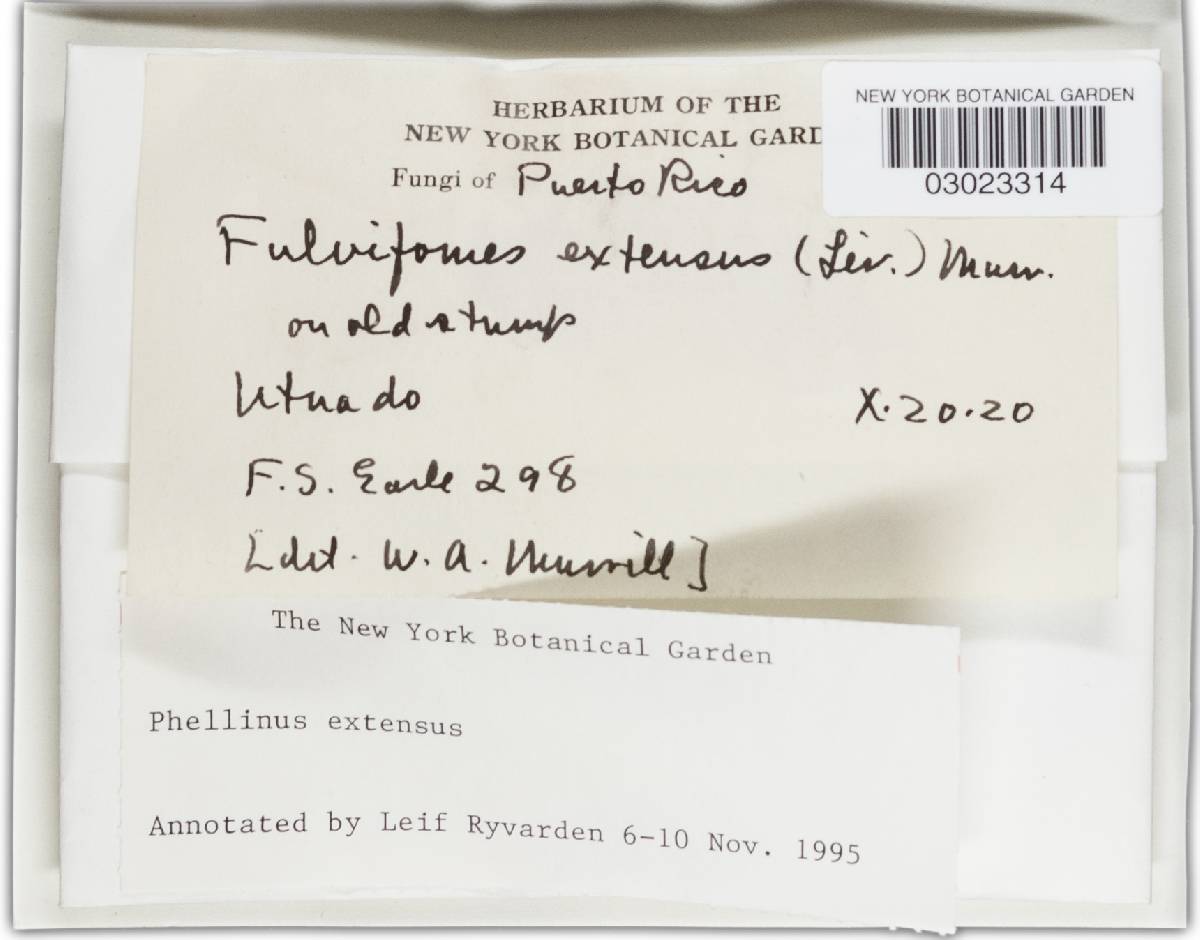 HERBARIUM OF THE
NEW YORK BOTANICAL GARD
Fungi of Puerto Rico
NEW YORK BOTANICAL GARDEN
03023314
Fulvifomes extensus (Lév.) Murr.
on old stump
Utuado
X.20.20
F.S. Earle 298
[det. W. A. Murrill]
The New York Botanical Garden
Phellinus extensus
Annotated by Leif Ryvarden 6-10 Nov. 1995